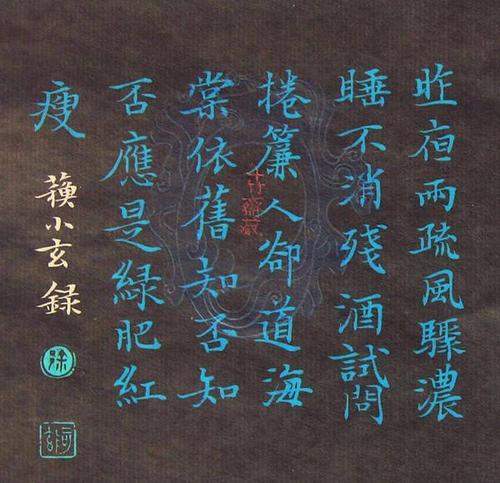 昨夜雨疏風驟濃
睡不消殘酒試問
捲簾人卻道海
棠依舊知否知
否應是綠肥紅
瘦
小玄録
竹齋藏